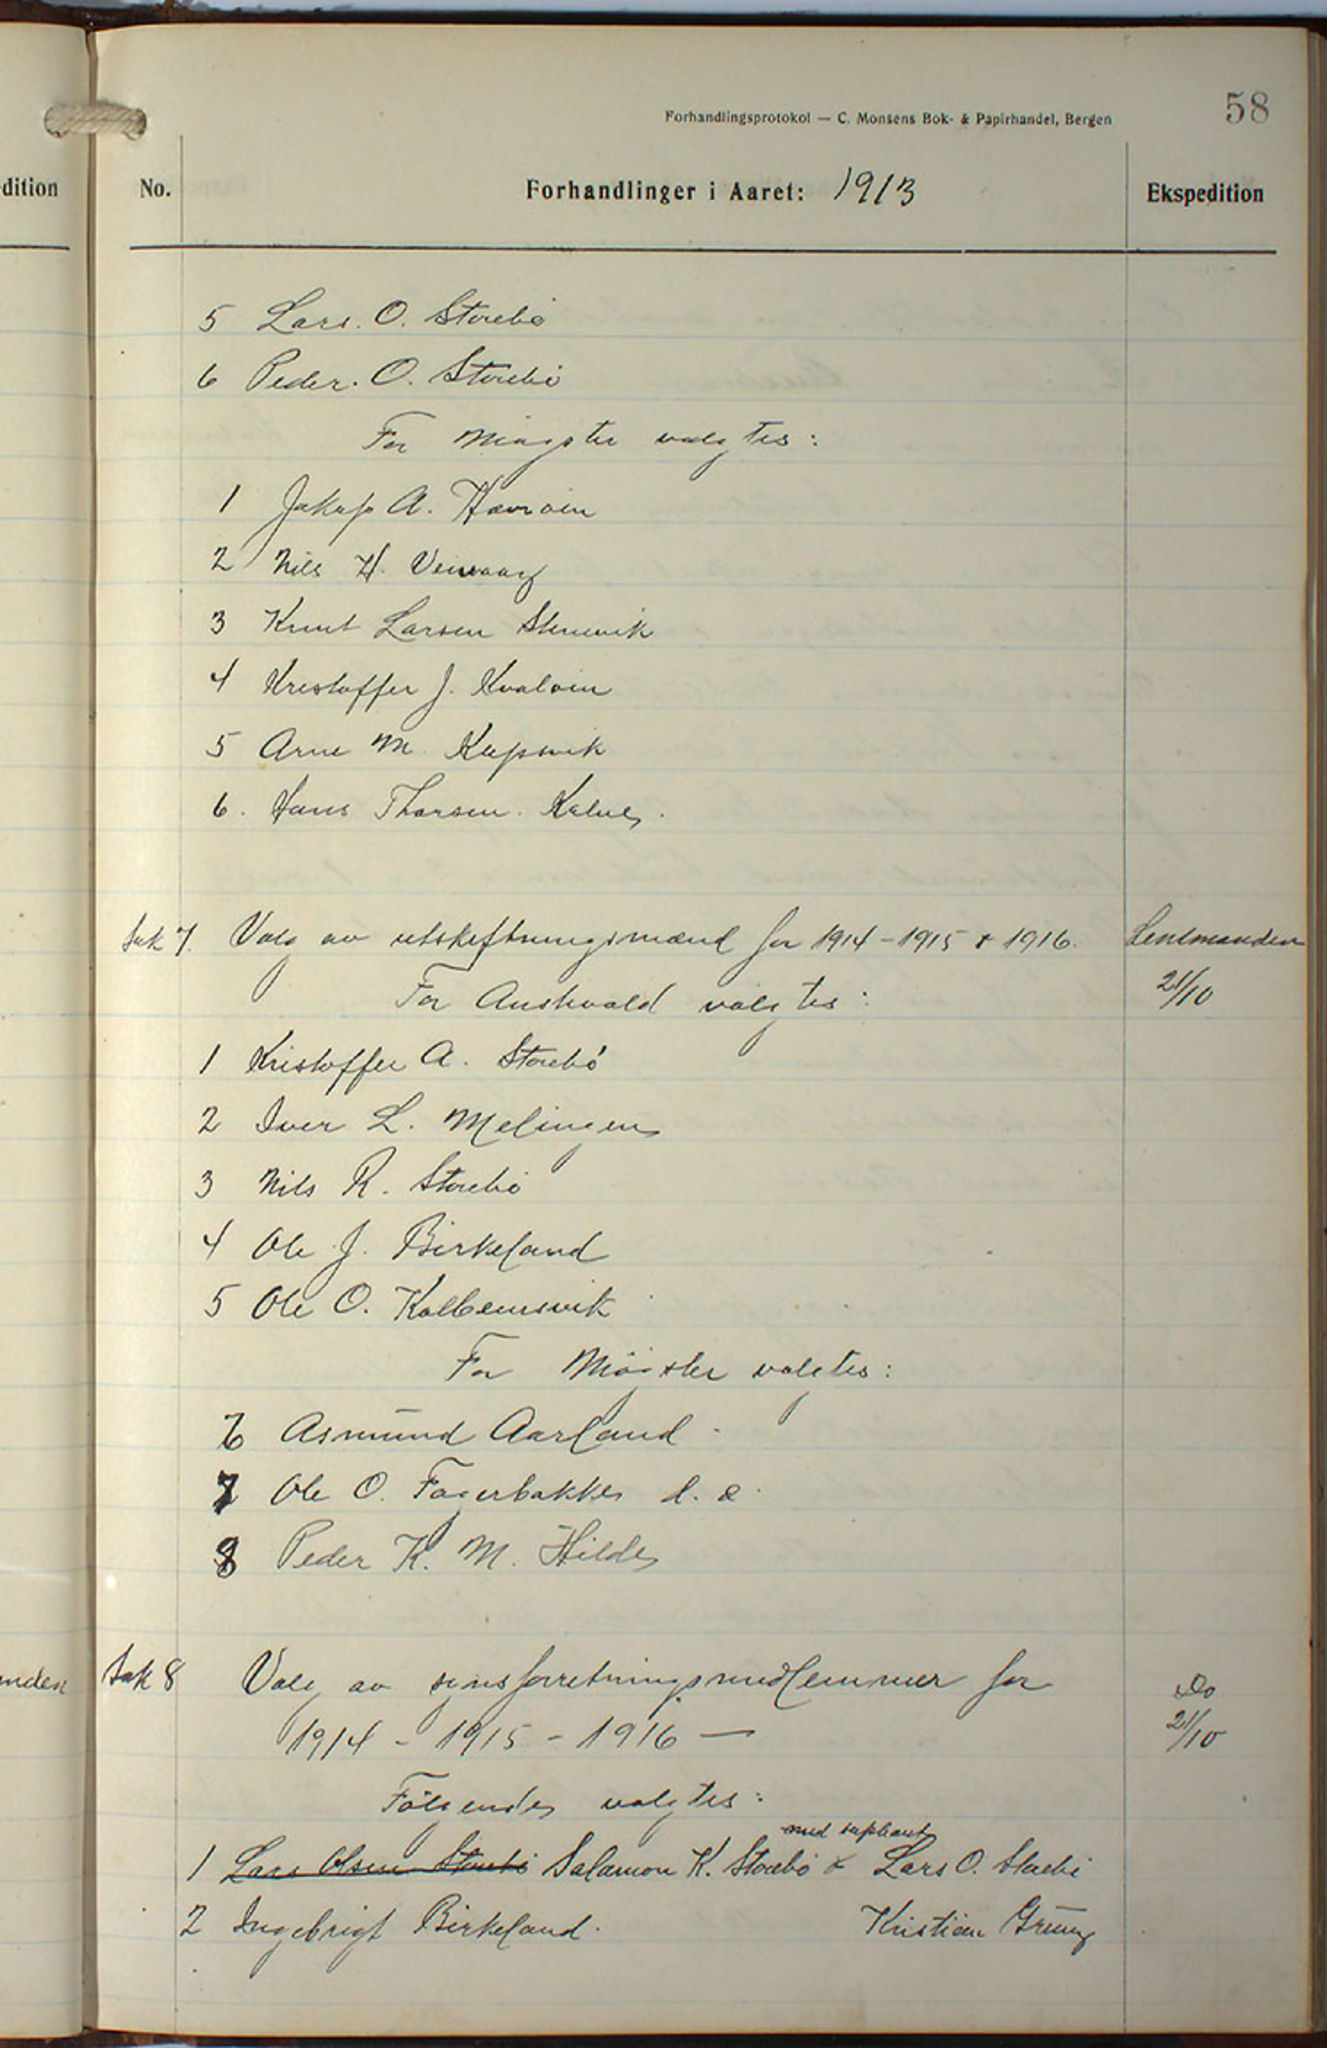 Forhandlingsprotokol — C. Monsens Bok- & Papirhandel, Bergen
58
dition
No.
Forhandlinger i Aaret: 1913
Ekspedition
5 Lars. O. Storebö
6 Peder. O. Storebö
For Mögster valgtes:
1 Jakop A. Havröen
2 Nils H. Veivaag
3 Knut Larsen Stenevik
4 Kristoffer J. Kvaløen
5 Arne M. Kupsvik
6. Hans Thorsen. Kalve.
Sak 7. Valg av utskiftningsmænd for 1914 – 1915 & 1916.
Lensmanden
21/10
For Austevold valgtes:
1 Kristoffer A. Storebö
2 Iver L. Melingen
3 Nils R. Storebö
4 Ole J. Birkeland
5 Ole O. Kolbeinsvik
For Mögster valgtes:
6 Asmund Aarland
7 Ole O. Fagerbakke d. e.
8 Peder K. M. Hilde
Sak 8 Valg av synsforretningsmedlemmer for
1914 – 1915 – 1916 —
Do
21/10
nden
Fölgende valgtes:
med supleant
1 Lars Olsen Storebö Salamon K. Storebö & Lars O. Storebö
2 Ingebrigt Birkeland. Kristian Grung